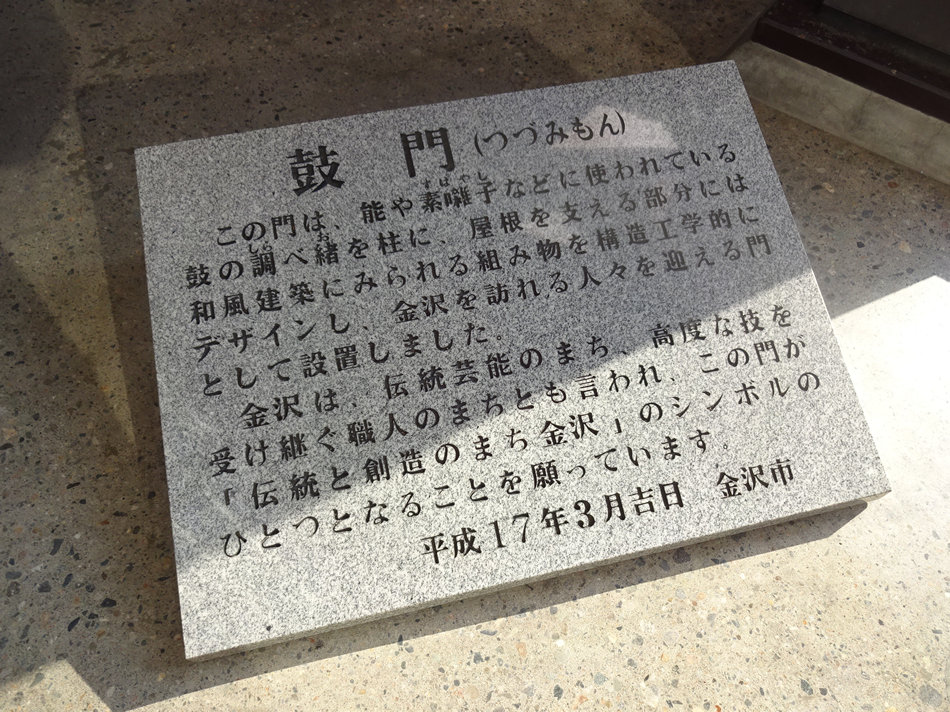 鼓 門(つづみもん)
この門は、能や素囃子などに使われている
鼓の調べ緒を柱に、屋根を支える部分には
和風建築にみられる組み物を構造工学的に
デザインし、金沢を訪れる人々を迎える門
として設置しました。
金沢は、伝統芸能のまち、高度な技を
受け継ぐ職人のまちとも言われ、この門が
「伝統と創造のまち金沢」のシンボルの
ひとつとなることを願っています。
平成17年3月吉日 金沢市